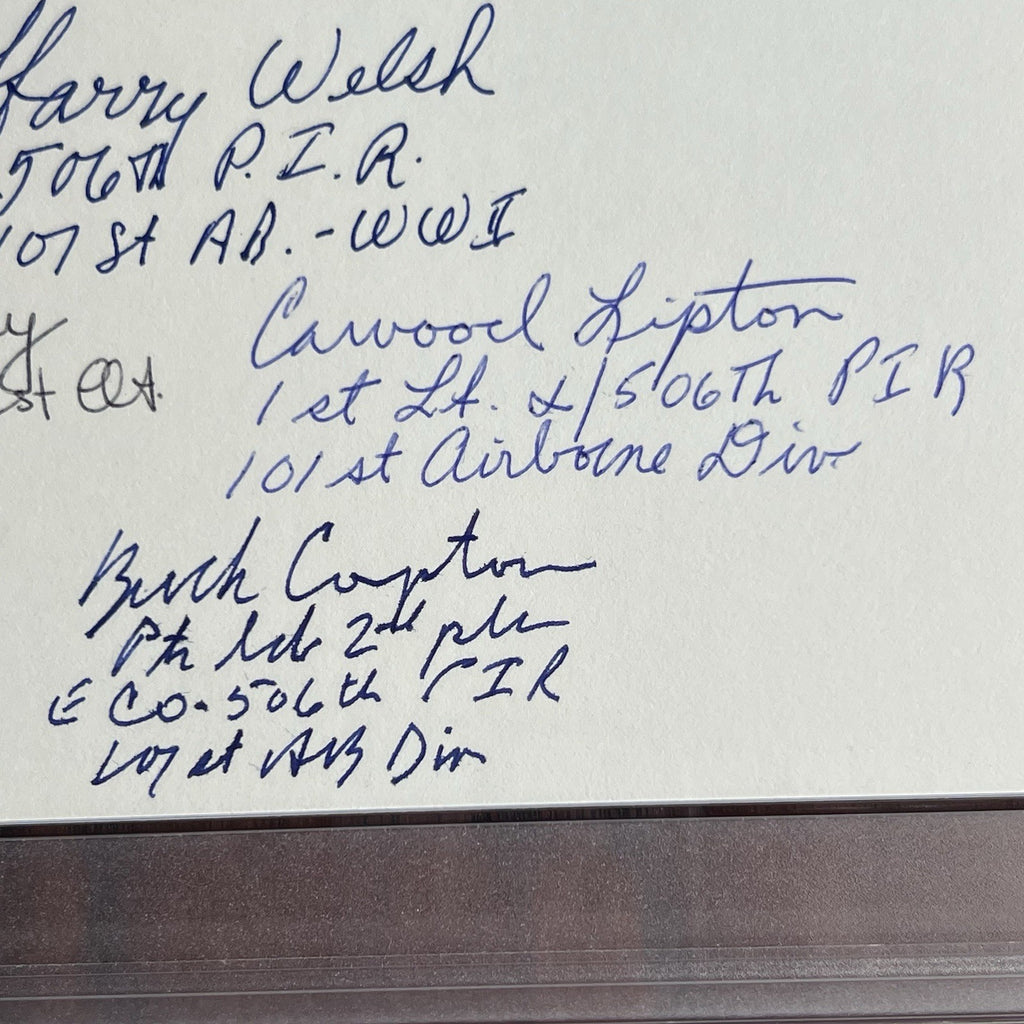 Harry Welsh
506th P.I.R.
101 st AB. - WWI
Carwood Lipton
1st Lt. 506Th PIR
101st Airborne Div
Buck Compton
2nd
E Co. 506th PIR
101 st AB Div